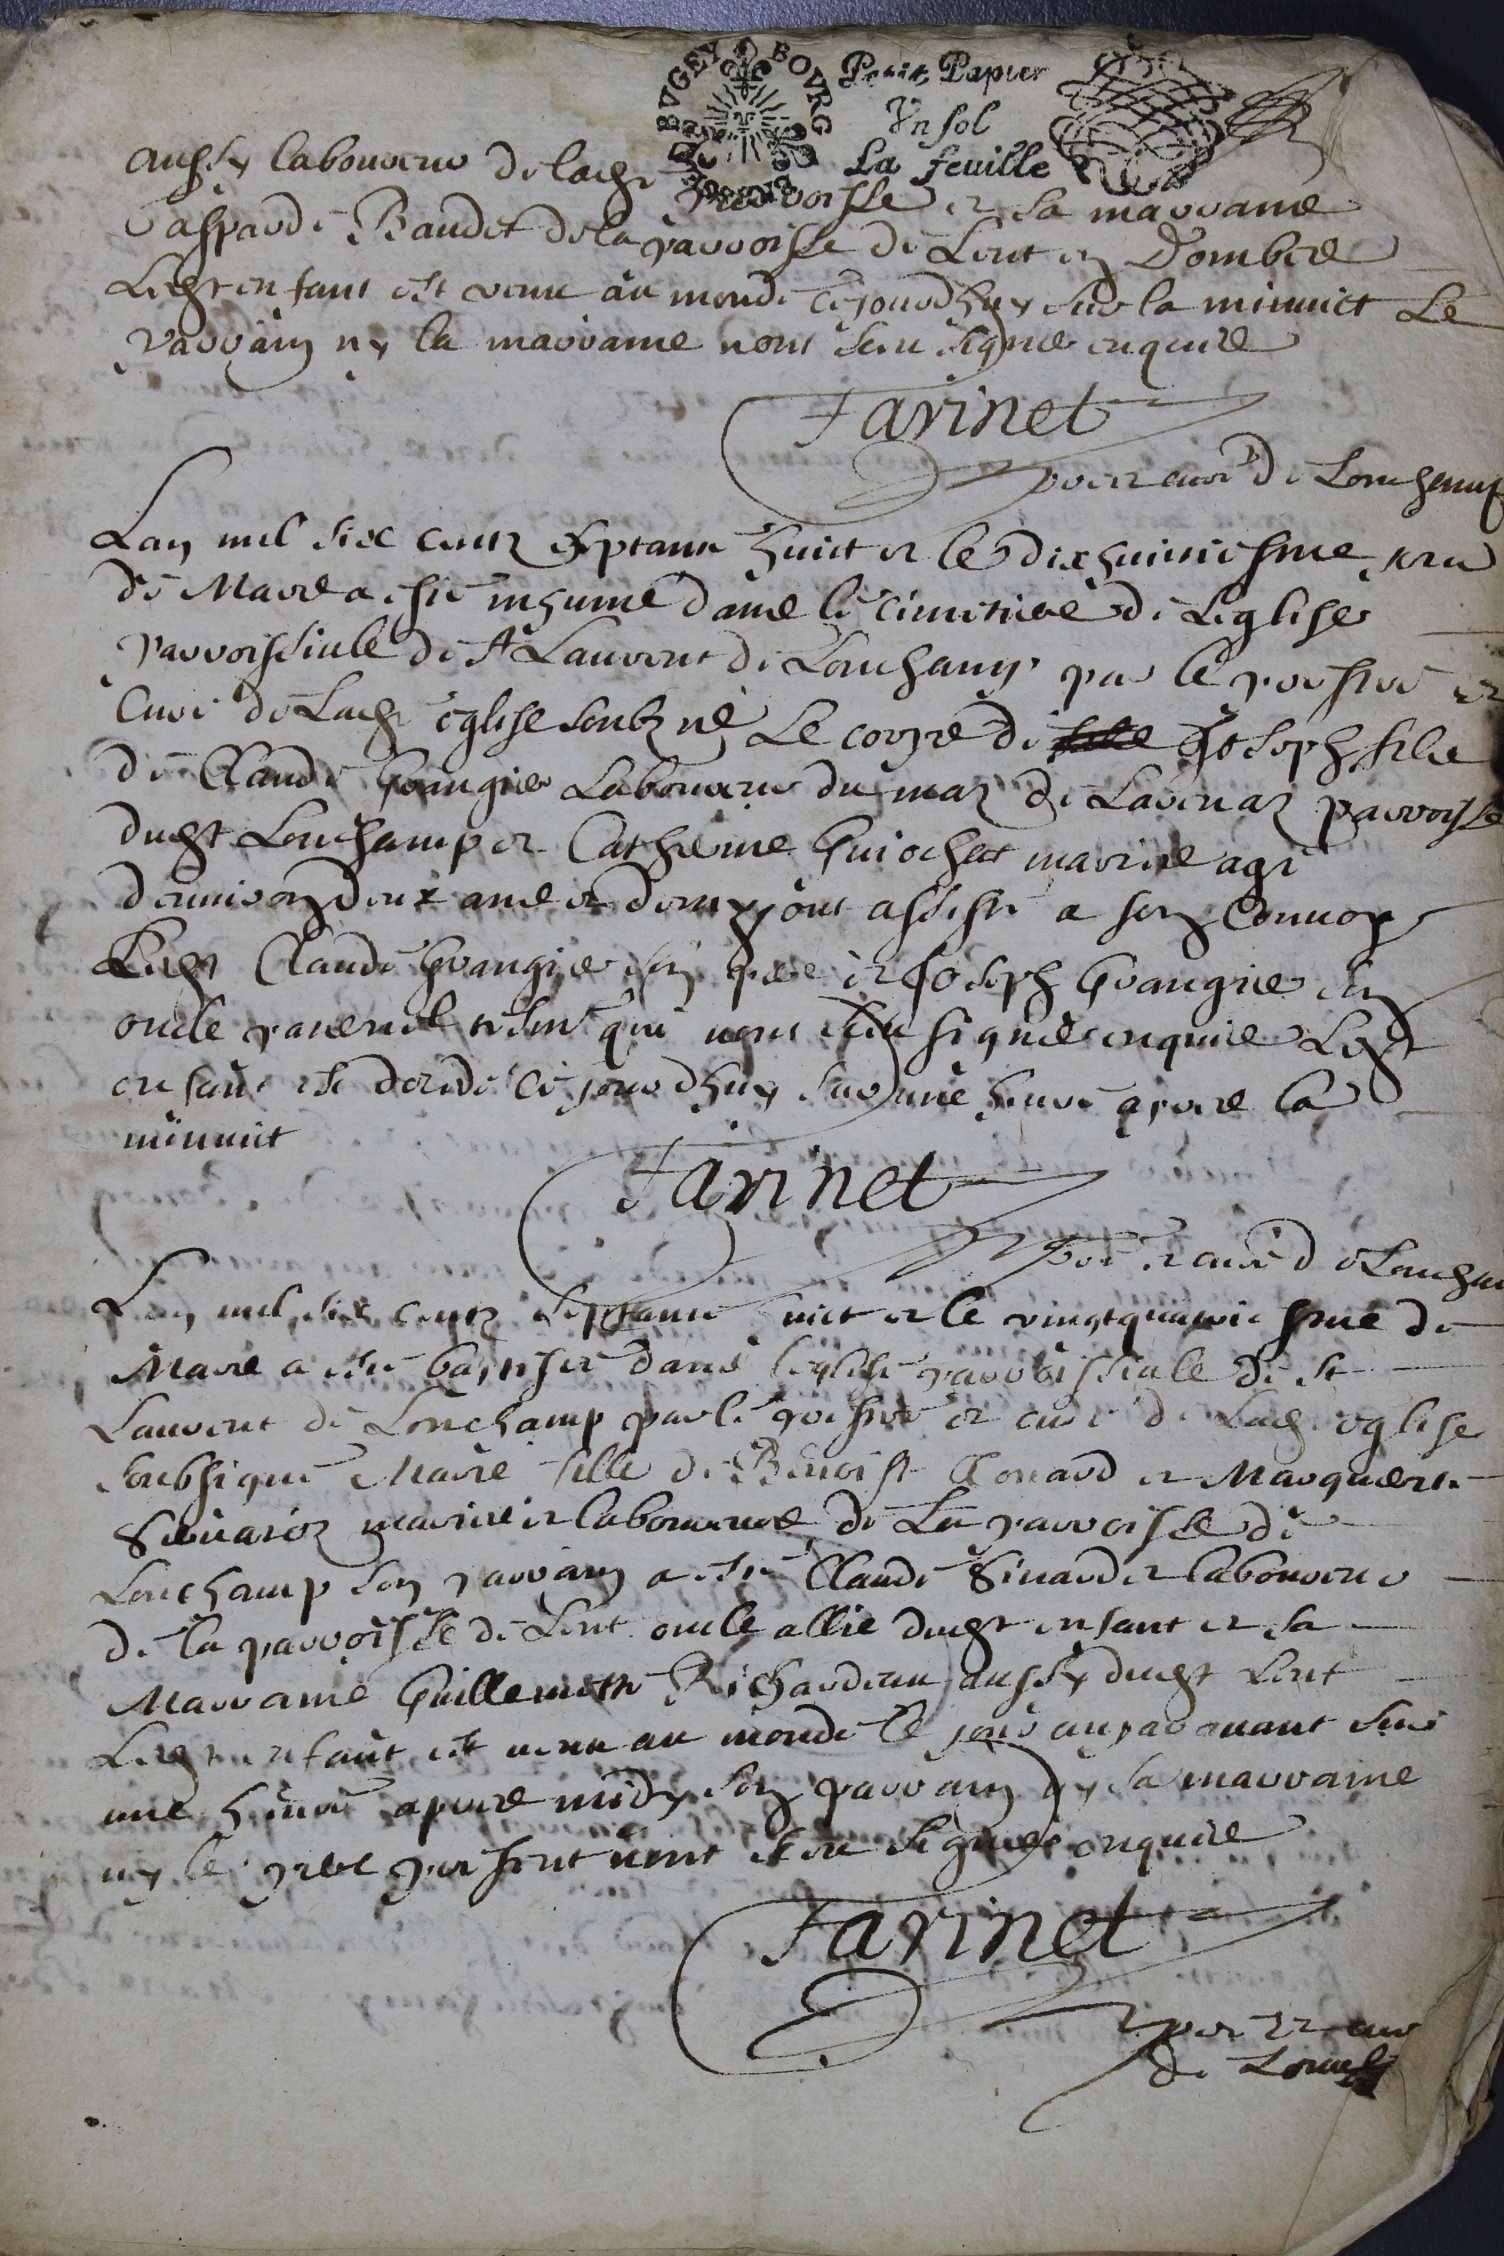 BVGEY BOVRG
Petit Papier
Vn sol
La feuille
aussy laboureur de ladte parroisse et sa marraine
Gasparde Baudet de la parroisse de Lent en Dombes
Ledt enfant est venu au monde cejourdhuy sur la minuict Le
parrain ny la marraine nont sceu signer enquis
Farinet
pbre et curé de Lonchamp
Lan mil six centz septante huict et le dixhuictiesme jour
de Mars a esté inhumé dans le cimetiere de Leglise
parroissiale de St Laurent de Lonchamp par le prestre et
Curé de Ladt eglise soubzné Le corps de Joseph filz
de Claude Grangier Laboureur du maz de Lavenaz parroisse
dudt Lonchamp et Catherine Guiochet mariés agé
denviron deux ans et demy ont assisté a son Convoy
Ledt Claude Grangier son pere et Joseph Grangier son
oncle paternel qui nont sceu signer enquis Ledt
enfant est decedé cejourdhuy sur une heure apres la
minuit
Farinet
pbre et curé de Lonchamp
Lan mil six centz septante huict et le vingtquatriesme de
Mars a esté baptisée dans leglise parroissiale de St
Laurent de Lonchamp par le prestre et curé de Ladt eglise
soubsigné Marie fille de Benoist Convard et Marguerite
mariés et laboureurs de La parroisse de
Lonchamp son parrain a esté Claude Sivard et laboureur
de la parroisse de Lent oncle allié dudt enfant et sa
Marraine Guillemette Richardeau aussy dudt Lent
Ledt enfant est venu au monde le jour auparavant sur
une heure apres midy son parrain ny sa marraine
ny le pere present nont sceu signer enquis
Farinet
pbre et curé
de Lonch